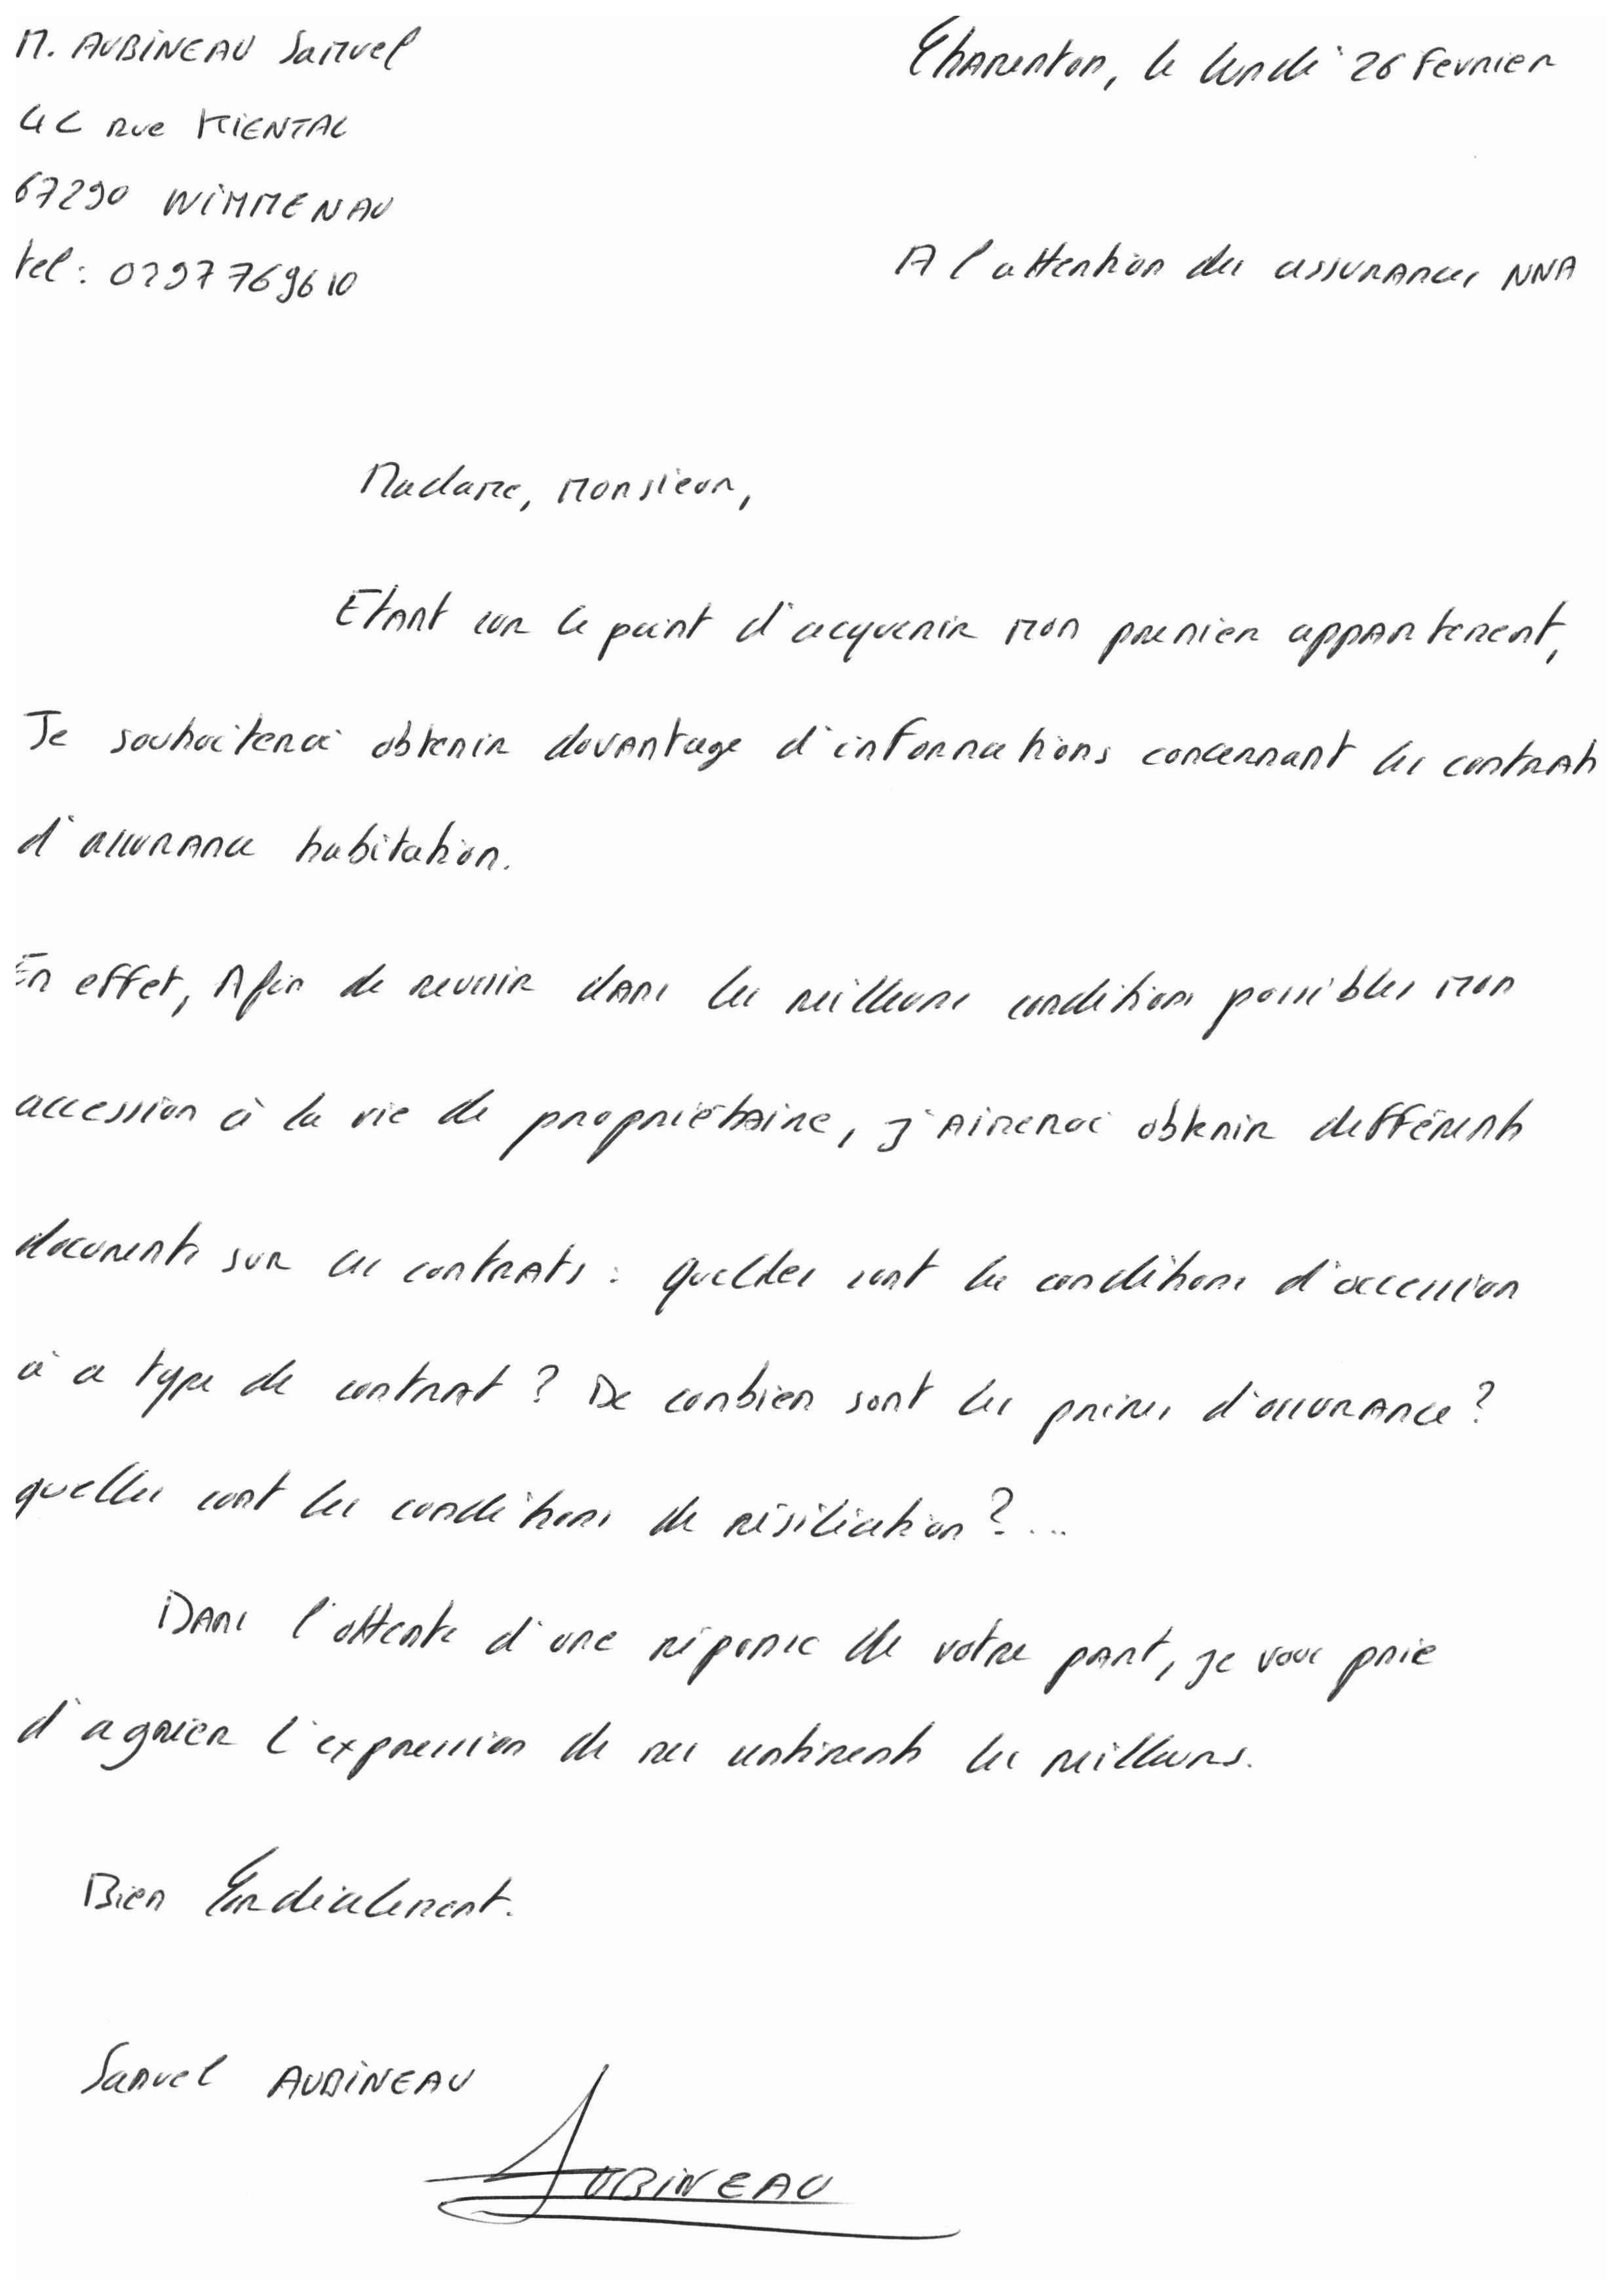 M. AUBINEAU Samuel
Charenton, le lundi 26 Fevrier
4C Rue KIENTAL
67290 WIMMENAU
tel : 0297769610
A l'attention des assurances NNA
Madame, Monsieur,
Etant sur le point d'acquerir mon premier appartement,
Je souhaiterai obtenir davantage d'informations concernant les contrats
d'assurance habitation.
En effet, Afin de reussir dans les meilleurs conditions possibles mon
accession à la vie de propriétaire, j'aimerai obtenir différents
documents sur les contrats : quelles sont les conditions d'accession
à ce type de contrat ? De combien sont les primes d'assurance ?
quelles sont les conditions de résiliation ? ...
Dans l'attente d'une réponse de votre part, je vous prie
d'agréer l'expression de mes sentiments les meilleurs.
Bien Cordialement.
Samuel AUBINEAU
AUBINEAU